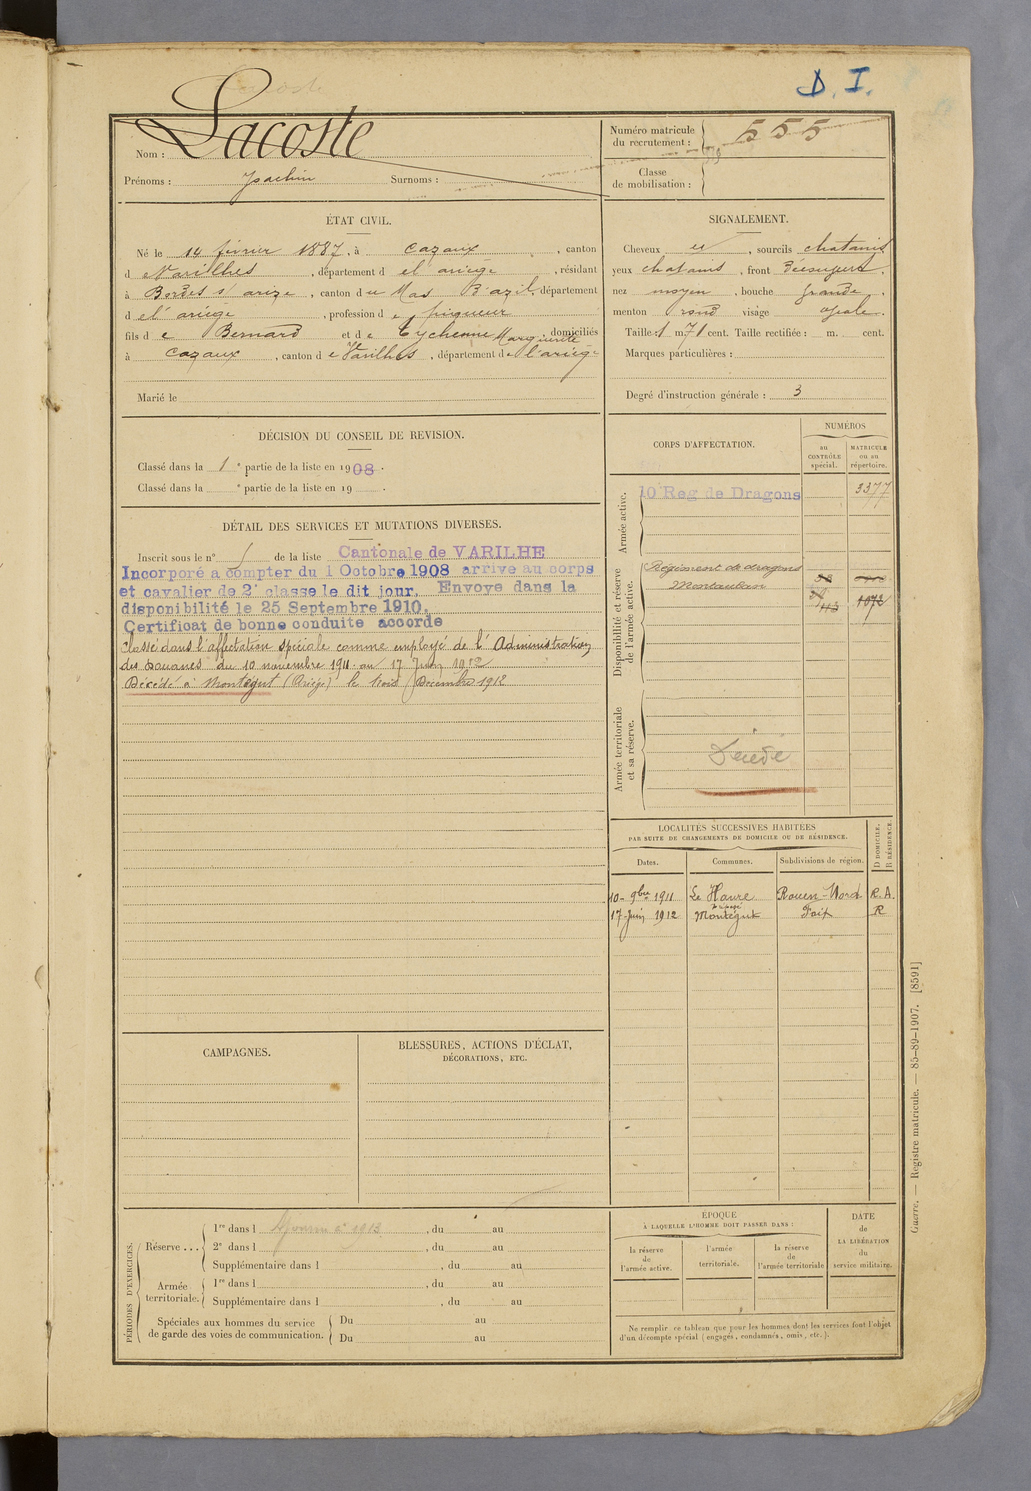 D. I.
Lacoste
Nom :
Prénoms : Joachin Surnoms :
Numéro matricule du recrutement : 555
Classe de mobilisation :
ÉTAT CIVIL.
Né le 14 février 1887, à Cazaux, canton
d Varilhes, département d el ariège, résidant
à Bordes s/ arize, canton d u Mas d'azil, département
d el' ariège, profession d e piqueur
fils d e Bernard et d e Eychenne Marguerite, domiciliés
à Cazaux, canton d e Varilhes, département d e l'ariège
Marié le
SIGNALEMENT.
Cheveux et, sourcils chatains
yeux chatains, front découvert,
nez moyen, bouche grande,
menton rond visage ovale.
Taille : 1 m 71 cent. Taille rectifiée : m. cent.
Marques particulières :
Degré d'instruction générale : 3
DÉCISION DU CONSEIL DE REVISION.
Classé dans la 1e partie de la liste en 1908.
Classé dans la e partie de la liste en 19 .
DÉTAIL DES SERVICES ET MUTATIONS DIVERSES.
Inscrit sous le n° de la liste Cantonale de VARILHE
Incorporé a compter du 1 Octobre 1908 arrive au corps
et cavalier de 2e classe le dit jour. Envoye dans la
disponibilité le 25 Septembre 1910.
Certificat de bonne conduite accorde
Classé dans l'affectation spéciale comme employé de l'Administration
des Douanes du 10 novembre 1911 au 17 Juin 1912
Décédé à Montégut (Ariège) le trois Décembre 1912
CORPS D'AFFECTATION.
NUMÉROS
au CONTRÔLE spécial.
MATRICULE ou au répertoire.
Armée active.
10 Reg de Dragons 3377
Disponibilité et réserve de l'armée active.
Régiment de dragons
Montauban
1072
Armée territoriale et sa réserve.
Décédé
LOCALITÉS SUCCESSIVES HABITÉES
PAR SUITE DE CHANGEMENTS DE DOMICILE OU DE RÉSIDENCE.
Dates. Communes. Subdivisions de région. D DOMICILE. R RÉSIDENCE.
10 - 9bre 1911 Le Havre Rouen-Nord R. A.
17 - Juin 1912 Montégut Foix R
CAMPAGNES.
BLESSURES, ACTIONS D'ÉCLAT,
DÉCORATIONS, ETC.
PÉRIODES D'EXERCICES.
Réserve ...
1re dans l Ajourné à 1913, du au
2e dans l , du au
Supplémentaire dans l , du au
Armée territoriale.
1re dans l , du au
Supplémentaire dans l , du au
Spéciales aux hommes du service Du au
de garde des voies de communication. Du au
ÉPOQUE
À LAQUELLE L'HOMME DOIT PASSER DANS :
la réserve de l'armée active.
l'armée territoriale.
la réserve de l'armée territoriale
DATE de LA LIBÉRATION du service militaire.
Ne remplir ce tableau que pour les hommes dont les services font l'objet
d'un décompte spécial (engagés, condamnés, omis, etc.).
Guerre. — Registre matricule. — 85-89-1907. [8591]